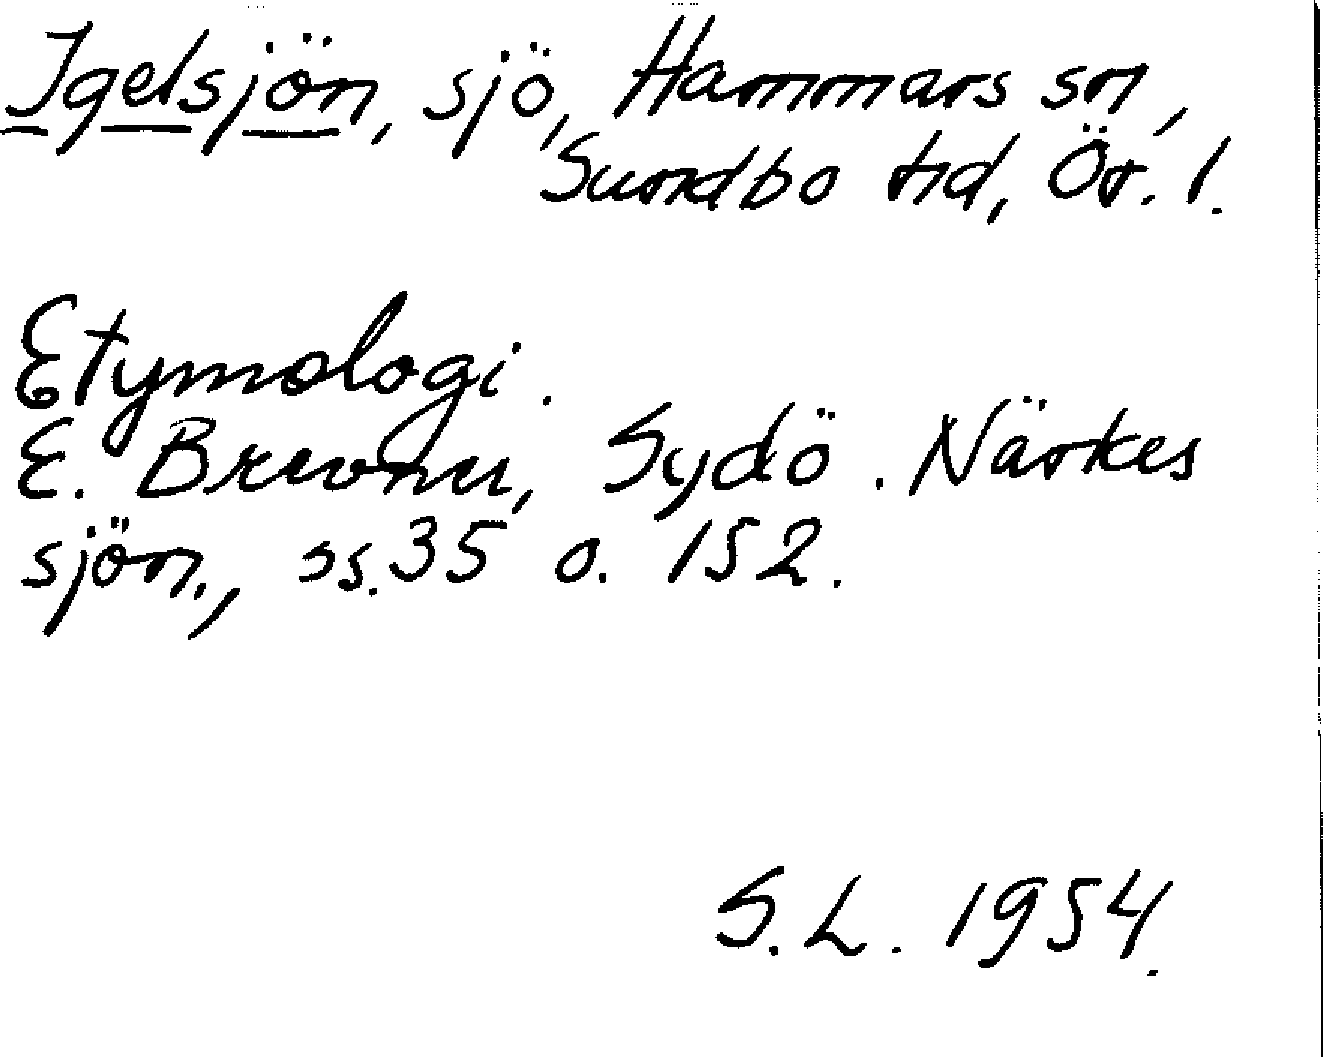 Igelsjön, sjö, Hammars sn,
Sundbo hd, Ör. l.
Etymologi.
E. Brevner, Sydö. Närkes
sjön., ss. 35 o. 152.
S.L. 1954.